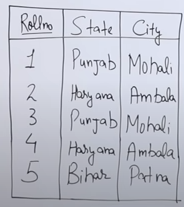 Rollno State City
1 Punjab Mohali
2 Haryana Ambala
3 Punjab Mohali
4 Haryana Ambala
5 Bihar Patna